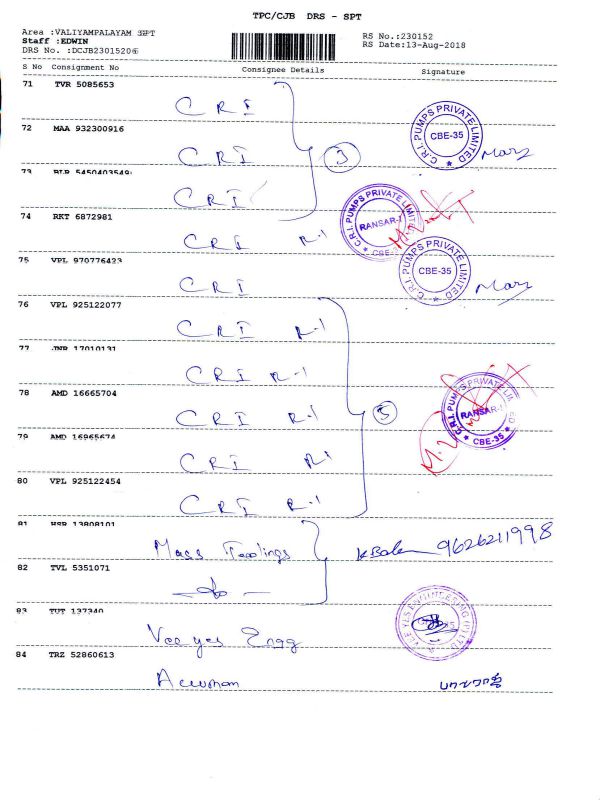 TPC/CJB DRS - SPT
Area :VALIYAMPALAYAM SPT
Staff :EDWIN
DRS No. :DCJB23015206
RS No.:230152
RS Date:13-Aug-2018
S No Consignment No Consignee Details Signature
71 TVR 5085653
CRI
72 MAA 932300916
CRI 3
C.R.I. PUMPS PRIVATE LIMITED CBE-35
73 BLR 5450403549
CRI
74 RKT 6872981
CRI R-1
C.R.I. PUMPS PRIVATE LIMITED RANSAR-1 CBE-35
75 VPL 970776423
CRI
C.R.I. PUMPS PRIVATE LIMITED CBE-35
76 VPL 925122077
CRI R-1
77 JNR 17010131
CRI R-1
78 AMD 16665704
CRI R-1 5
C.R.I. PUMPS PRIVATE LIMITED RANSAR-1 CBE-35
79 AMD 16965674
CRI R1
80 VPL 925122454
CRI R-1
81 HSR 13808101
Maas Toolings 9626211998
82 TVL 5351071
83 TUT 137340
Vee yes Engg
84 TRZ 52860613